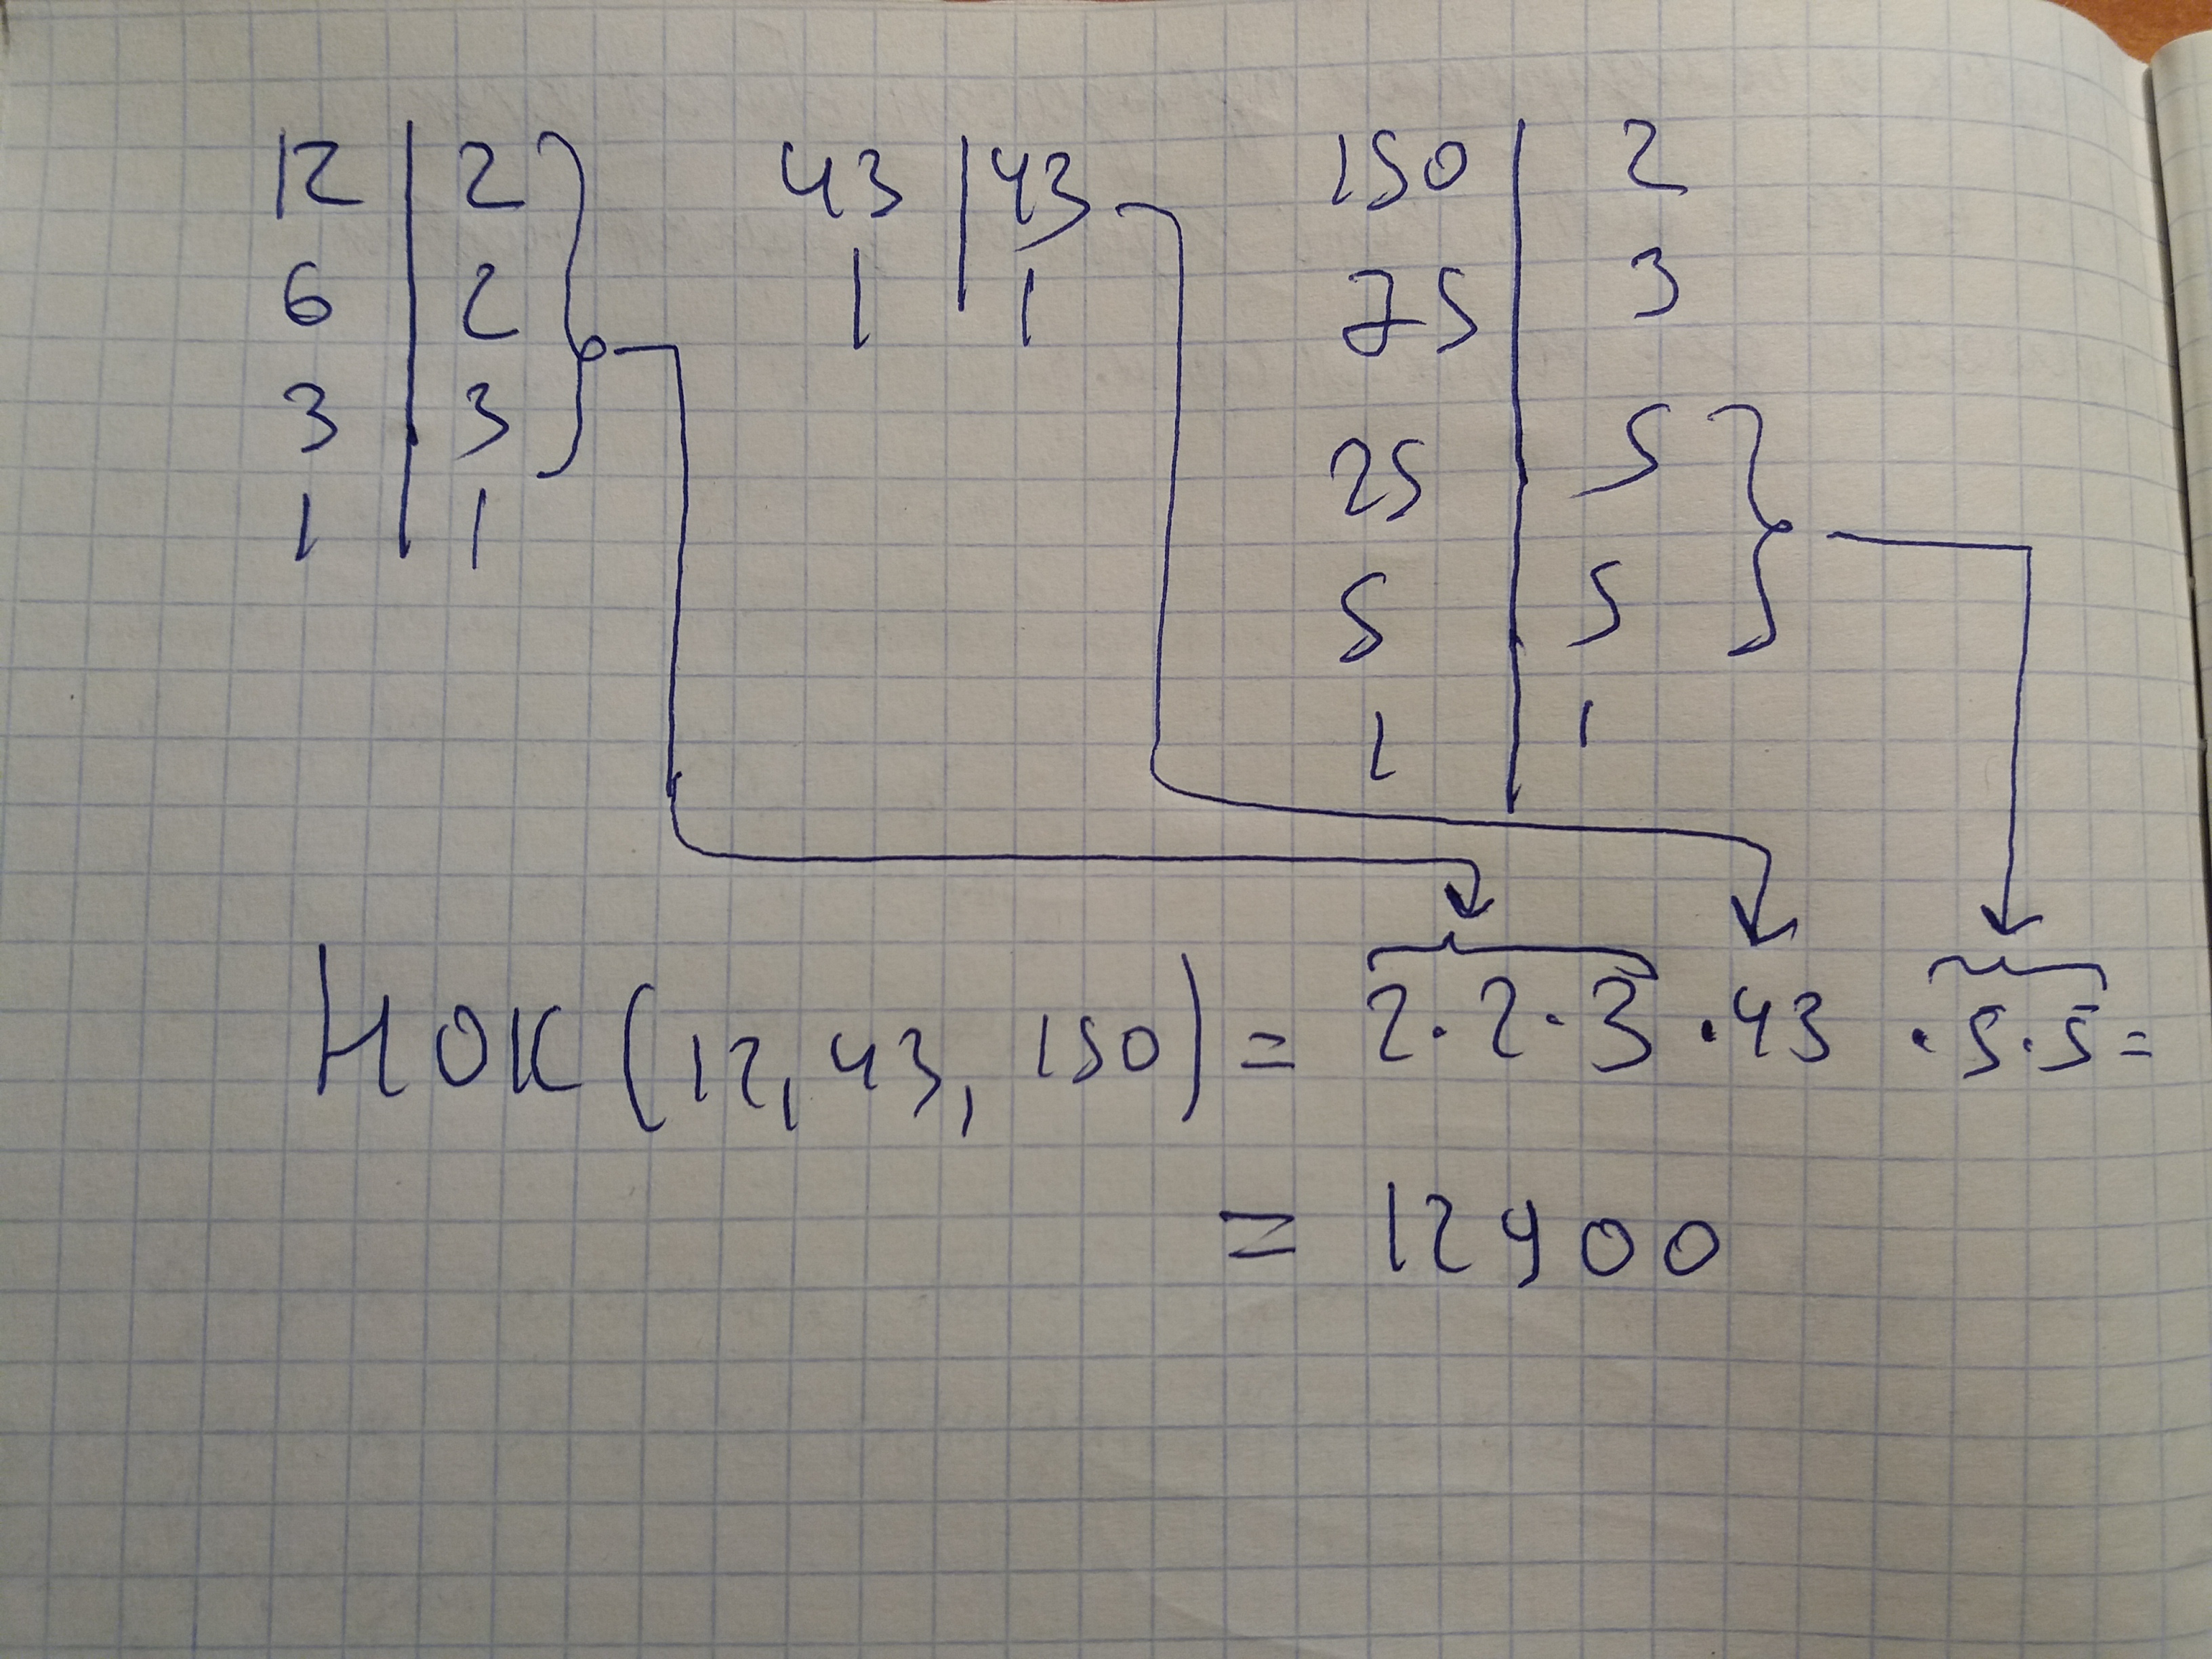 12 | 2
6 | 2
3 | 3
1 | 1
43 | 43
1 | 1
150 | 2
75 | 3
25 | 5
5 | 5
1 | 1
НОК (12, 43, 150) = 2·2·3·43·5·5=
= 12900